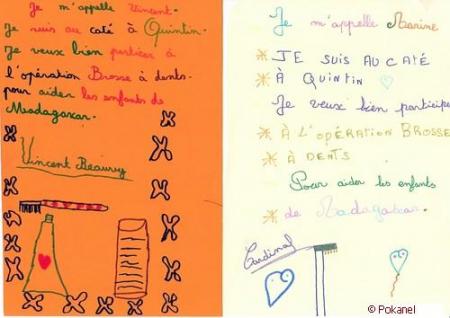 Je m'appelle Vincent.
Je suis au caté à Quintin.
Je veux bien particer à
l'opération Brosse à dents
pour aider les enfants de
Madagascar.
Vincent Beaury
Je m'appelle Marine
JE SUIS AU CATÉ
À QUINTIN
Je veux bien participer
À L'OPÉRATION BROSSE
À DENTS
Pour aider les enfants
de Madagascar.
Cardinal
© Pokanel